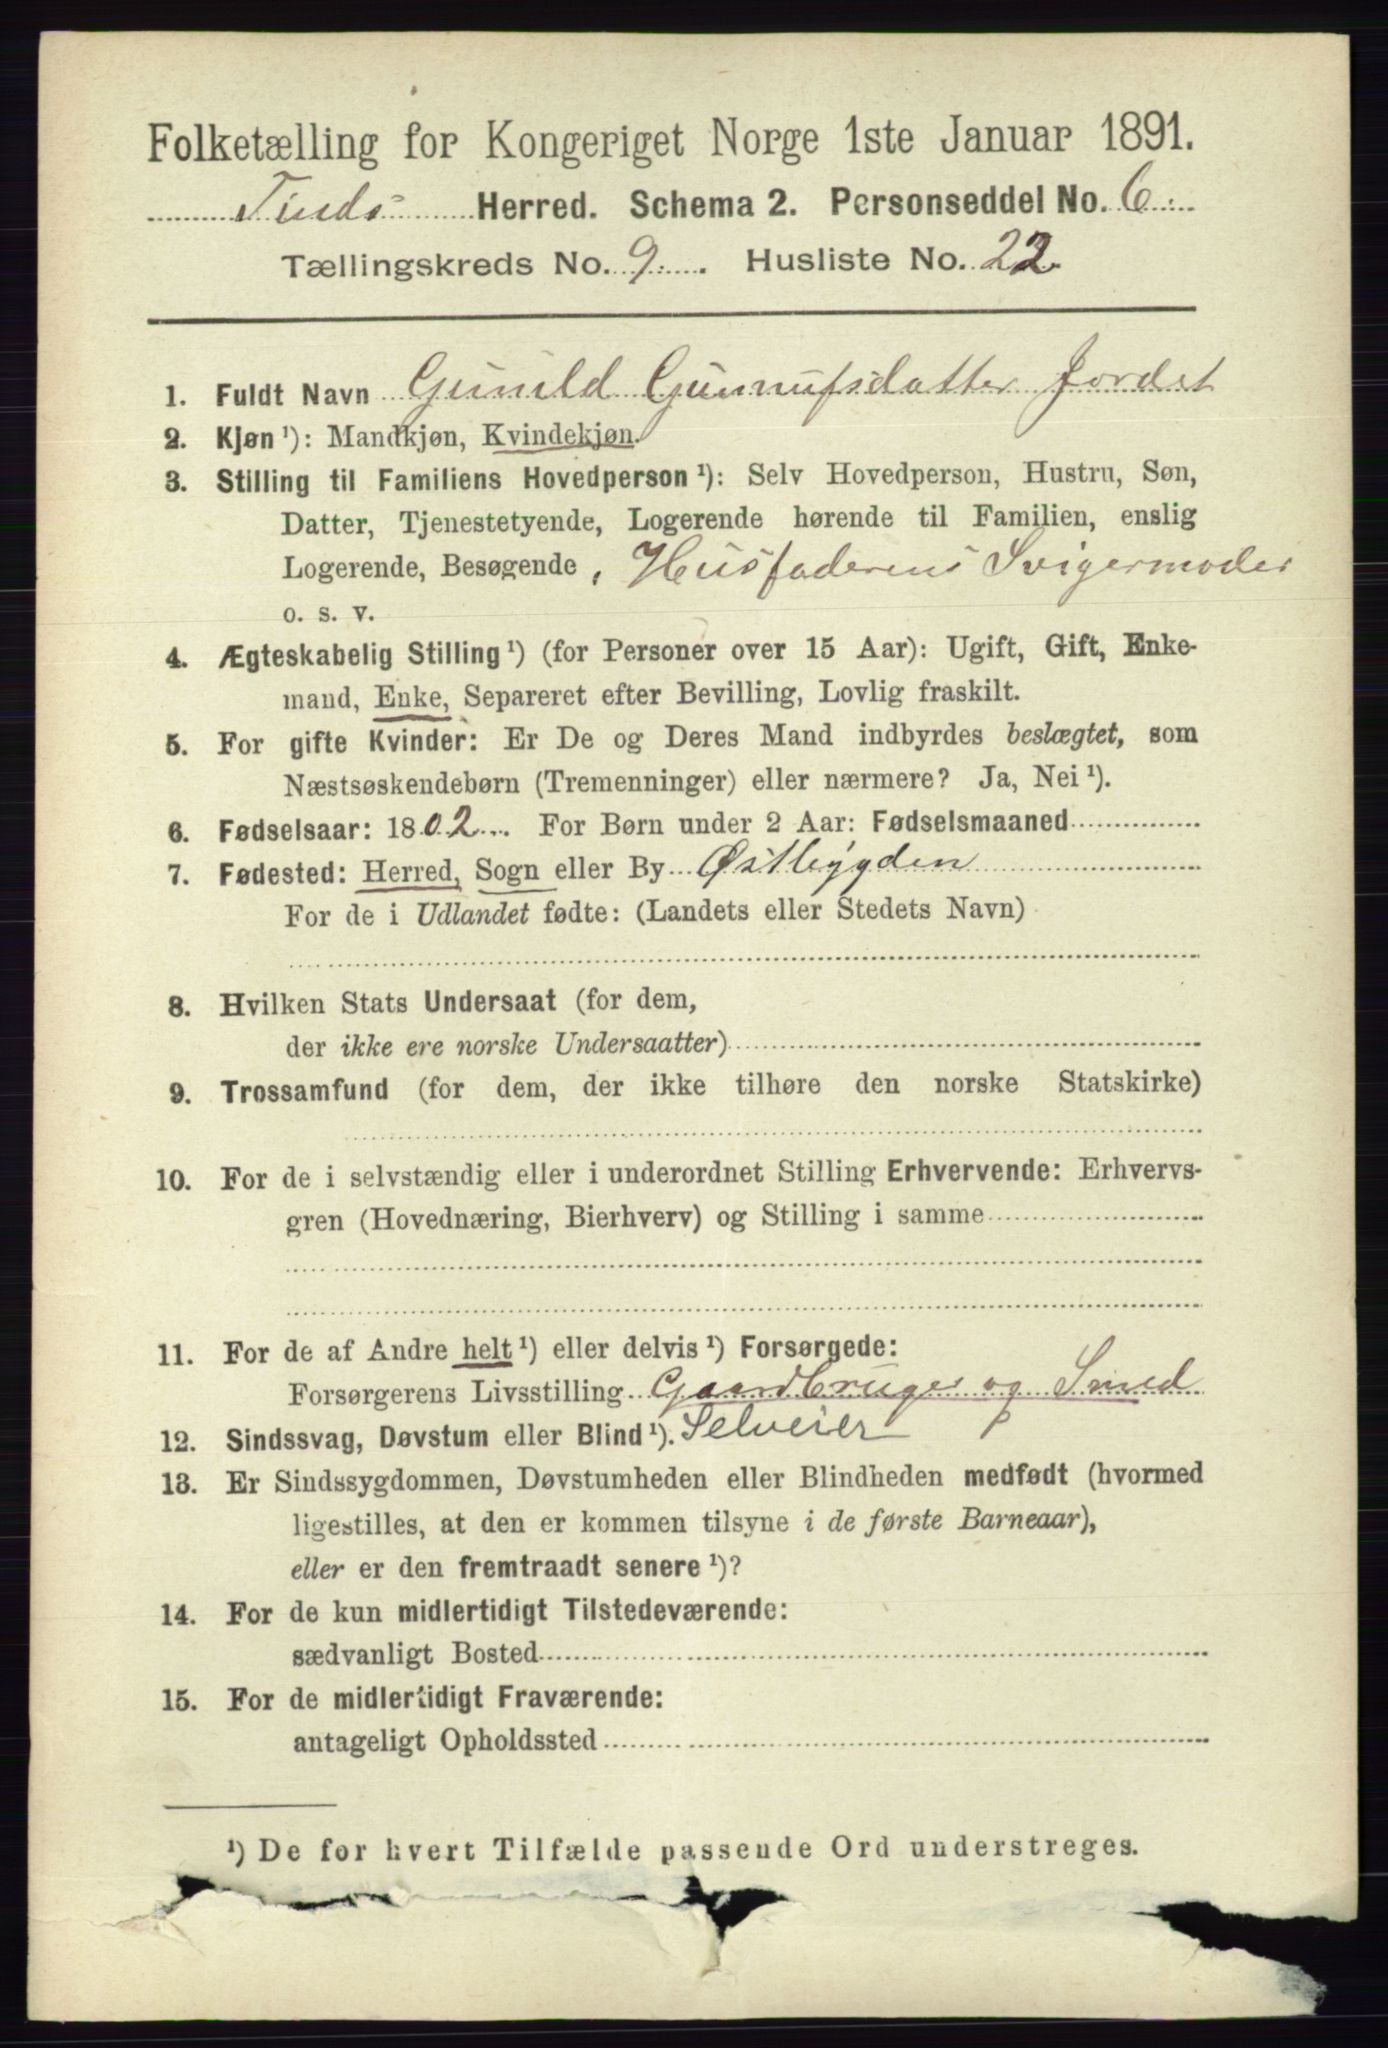 Folketælling for Kongeriget Norge 1ste Januar 1891.
Tinds Herred. Schema 2. Personseddel No. 6.
Tællingskreds No. 9. Husliste No. 22.
1. Fuldt Navn Gunild Gunnufsdatter Jordet
2. Kjøn ¹): Mandkjøn, Kvindekjøn.
3. Stilling til Familiens Hovedperson ¹): Selv Hovedperson, Hustru, Søn,
Datter, Tjenestetyende, Logerende hørende til Familien, enslig
Logerende, Besøgende, Husfaderens Svigermoder
o. s. v.
4. Ægteskabelig Stilling ¹) (for Personer over 15 Aar): Ugift, Gift, Enke-
mand, Enke, Separeret efter Bevilling, Lovlig fraskilt.
5. For gifte Kvinder: Er De og Deres Mand indbyrdes beslægtet, som
Næstsøskendebørn (Tremenninger) eller nærmere? Ja, Nei ¹).
6. Fødselsaar: 1802. For Børn under 2 Aar: Fødselsmaaned
7. Fødested: Herred, Sogn eller By Østbygden
For de i Udlandet fødte: (Landets eller Stedets Navn)
8. Hvilken Stats Undersaat (for dem,
der ikke ere norske Undersaatter)
9. Trossamfund (for dem, der ikke tilhøre den norske Statskirke)
10. For de i selvstændig eller i underordnet Stilling Erhvervende: Erhvervs-
gren (Hovednæring, Bierhverv) og Stilling i samme
11. For de af Andre helt ¹) eller delvis ¹) Forsørgede:
Forsørgerens Livsstilling Gaardbruger og Smed
12. Sindssvag, Døvstum eller Blind ¹). Selveier
13. Er Sindssygdommen, Døvstumheden eller Blindheden medfødt (hvormed
ligestilles, at den er kommen tilsyne i de første Barneaar),
eller er den fremtraadt senere ¹)?
14. For de kun midlertidigt Tilstedeværende:
sædvanligt Bosted
15. For de midlertidigt Fraværende:
antageligt Opholdssted
¹) De for hvert Tilfælde passende Ord understreges.